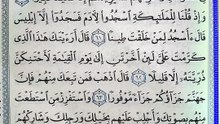 وَإِذْ قُلْنَا لِلْمَلَٰٓئِكَةِ ٱسْجُدُوا۟ لِءَادَمَ فَسَجَدُوٓا۟ إِلَّآ إِبْلِيسَ
قَالَ ءَأَسْجُدُ لِمَنْ خَلَقْتَ طِينًا ٦١ قَالَ أَرَءَيْتَكَ هَٰذَا ٱلَّذِى
كَرَّمْتَ عَلَىَّ لَئِنْ أَخَّرْتَنِ إِلَىٰ يَوْمِ ٱلْقِيَٰمَةِ لَأَحْتَنِكَنَّ
ذُرِّيَّتَهُۥٓ إِلَّا قَلِيلًا ٦٢ قَالَ ٱذْهَبْ فَمَن تَبِعَكَ مِنْهُمْ فَإِنَّ
جَهَنَّمَ جَزَآؤُكُمْ جَزَآءً مَّوْفُورًا ٦٣ وَٱسْتَفْزِزْ مَنِ ٱسْتَطَعْتَ
مِنْهُم بِصَوْتِكَ وَأَجْلِبْ عَلَيْهِم بِخَيْلِكَ وَرَجِلِكَ وَشَارِكْهُمْ